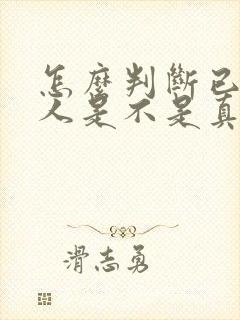 怎麼判斷已
人是不是真
滑志勇